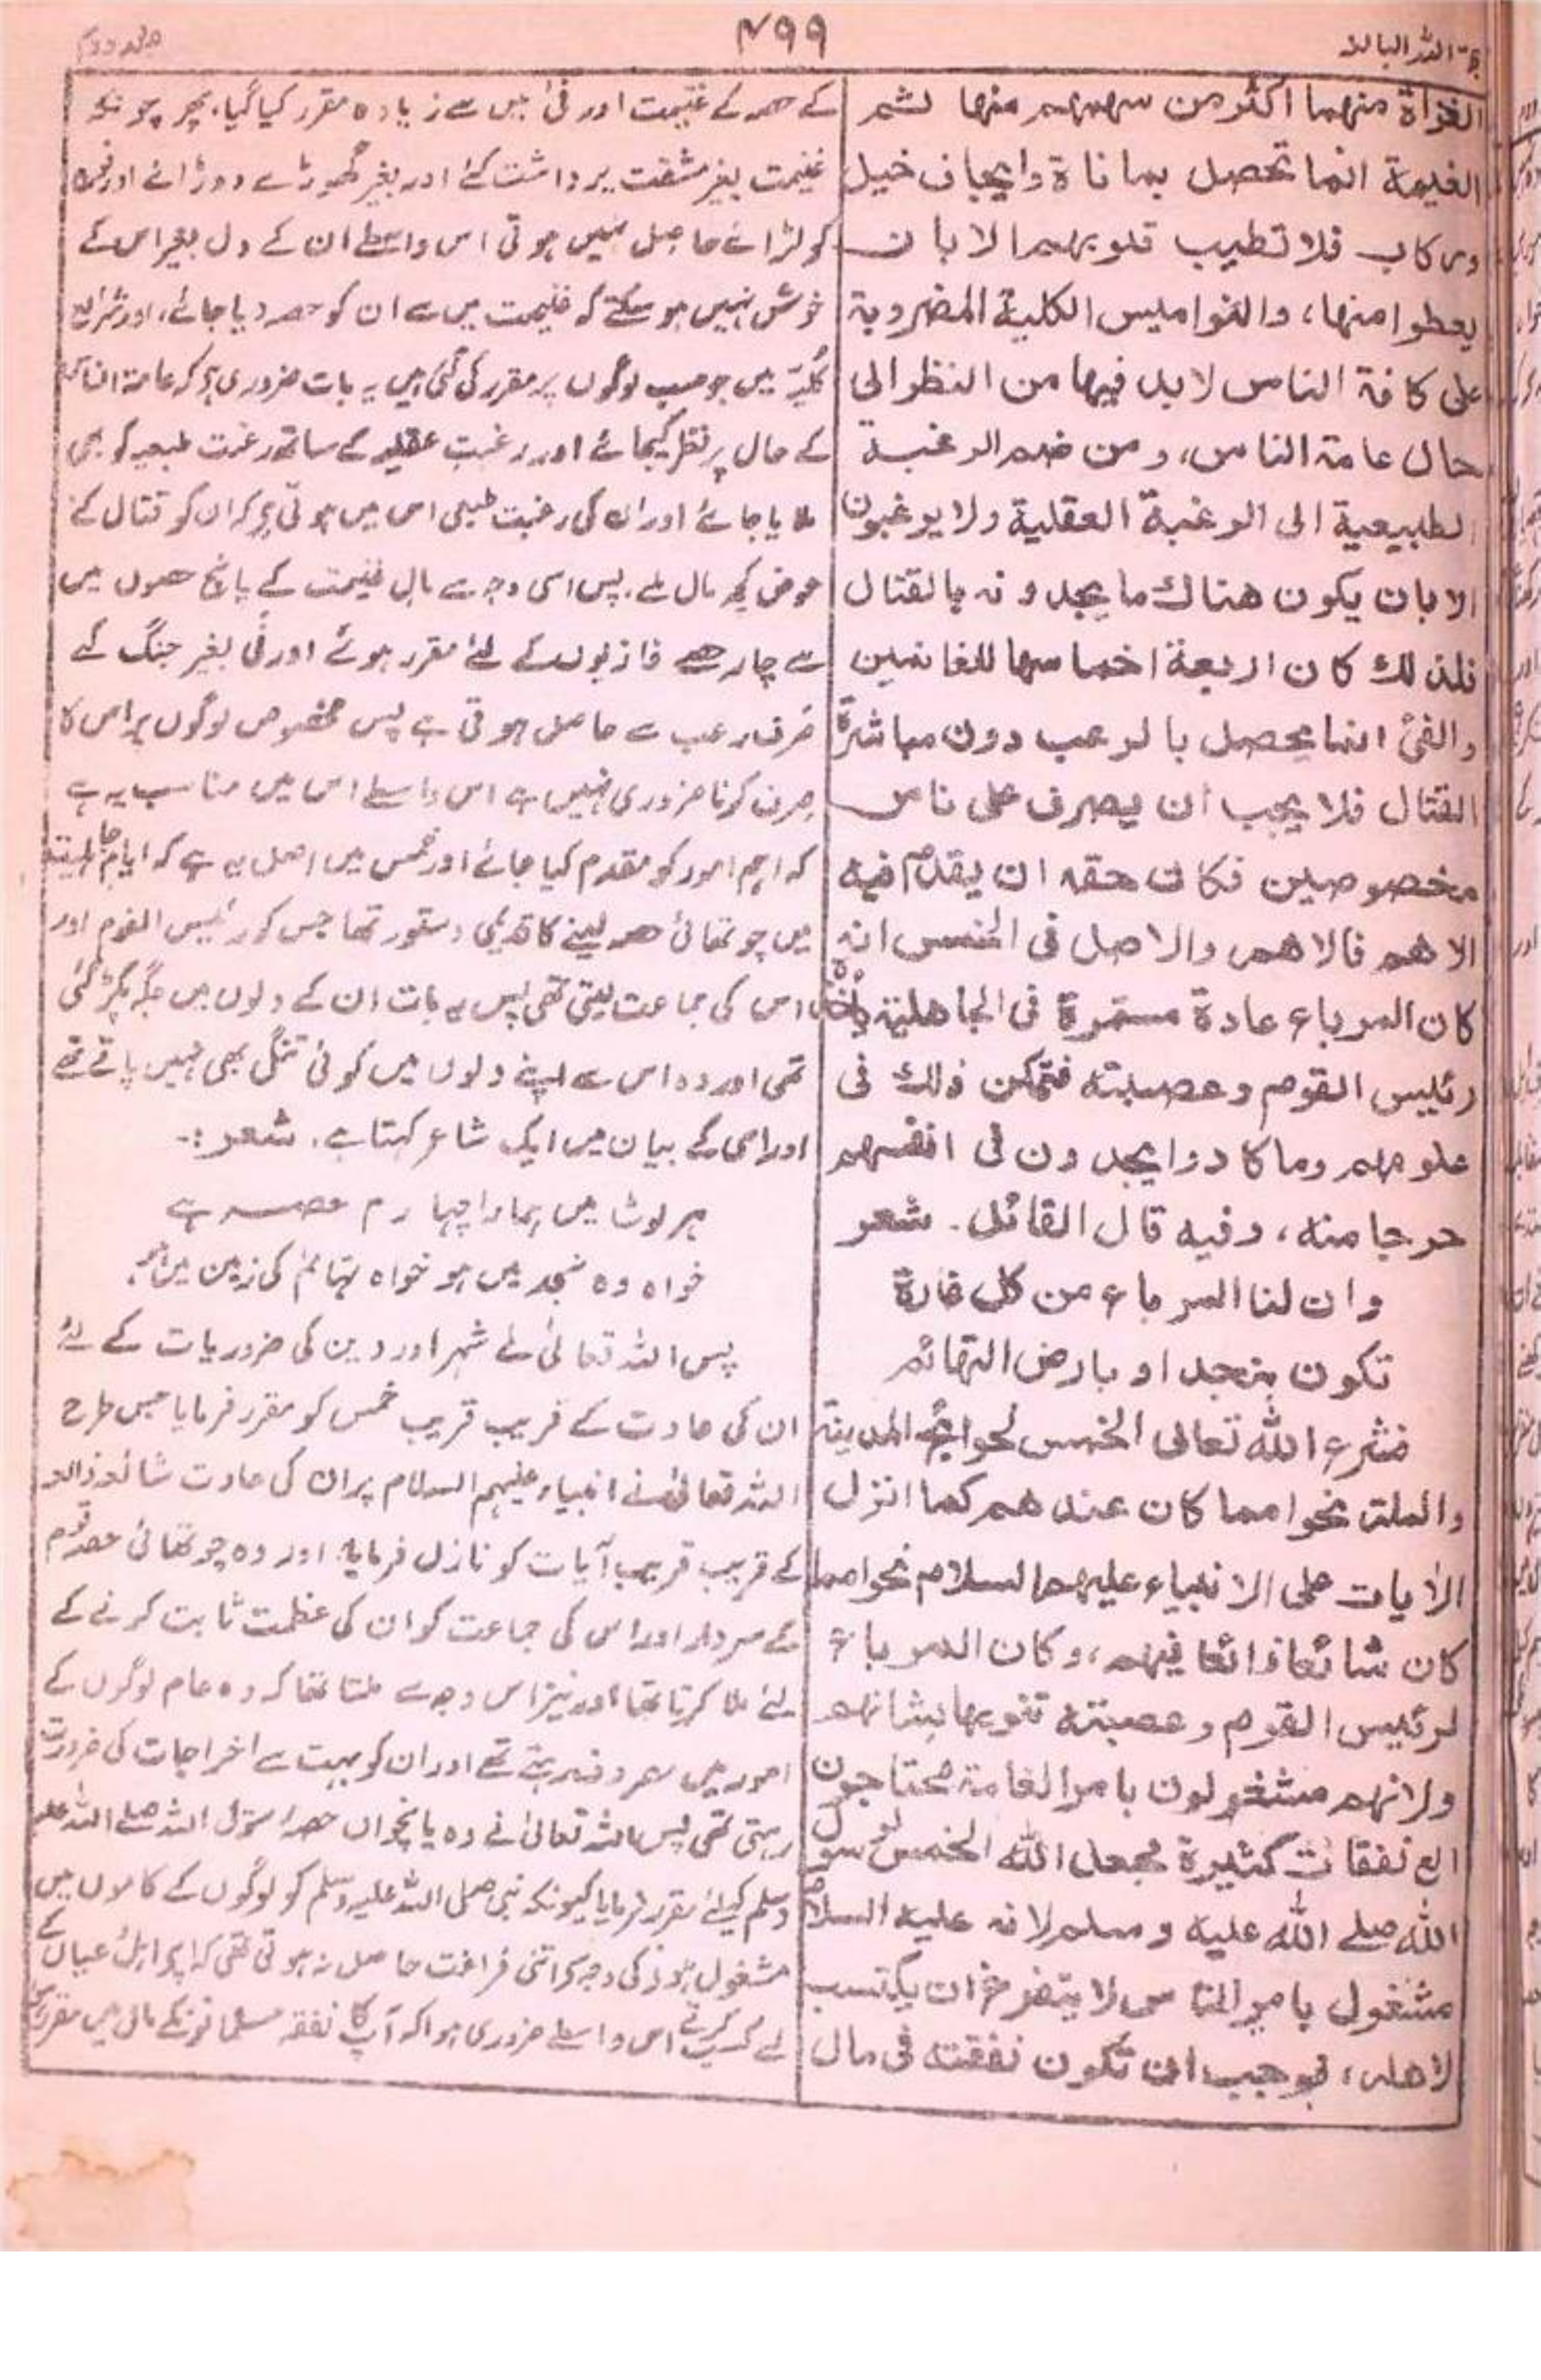 حجة اللہ البالغہ
۴۹۹
جلد دوم
الغزاة منهما اكثر من سهمهم منها ثم
الغنيمة انما تحصل بمعاناة وايجاف خيل
وركاب فلا تطيب قلوبهم الا بان
يعطوا منها، والنواميس الكلية المضروبة
على كافة الناس لا بد فيها من النظر الى
حال عامة الناس، ومن ضم الرغبة
الطبيعية الى الرغبة العقلية ولا يرغبون
الا بان يكون هناك ما يجدونه بالقتال
فلذلك كان اربعة اخماسها للغانمين
والفئ انما يحصل بالرعب دون مباشرة
القتال فلا يجب ان يصرف على ناس
مخصوصين فكان حقه ان يقدم فيه
الاهم فالاهم والاصل فى الخمس انه
كان المرباع عادة مستمرة فى الجاهلية ياخذه
رئيس القوم وعصبته فتمكن ذلك فى
علومهم وما كادوا يجدون فى انفسهم
حرجا منه، وفيه قال القائل۔ شعر
وان لنا المرباع من كل غارة
تكون بنجد او بارض التهائم
فشرع الله تعالى الخمس لحوائج المدينة
والملة نحوا مما كان عندهم كما انزل
الايات على الانبياء عليهم السلام نحوا مما
كان شائعا ذائعا فيهم، وكان المرباع
لرئيس القوم وعصبته تنويها بشانهم
ولانهم مشغولون بامر العامة محتاجون
الى نفقات كثيرة فجعل الله الخمس لرسول
الله صلے الله عليه وسلم لانه عليه السلام
مشغول بامر الناس لا يتفرغ ان يكتسب
لاهله، فوجب ان تكون نفقته فى مال
کے حصہ کے غنیمت اور فئ میں سے زیادہ مقرر کیا گیا۔ پھر چونکہ
غنیمت بغیر مشقت برداشت کئے اور بغیر گھوڑے دوڑائے اور
کو لڑائے حاصل نہیں ہوتی اس واسطے ان کے دل بغیر اس کے
خوش نہیں ہو سکتے کہ غنیمت میں سے ان کو حصہ دیا جائے، اور شرائع
کلیہ میں جو سب لوگوں پر مقرر کی گئی ہیں یہ بات ضروری ہے کہ عامۃ الناس
کے حال پر نظر کیجائے اور رغبت عقلیہ کے ساتھ رغبت طبعیہ کو بھی
ملایا جائے اور ان کی رغبت طبعی اس میں ہوتی ہے کہ ان کو قتال کے
عوض کچھ مال ملے۔ پس اسی وجہ سے مال غنیمت کے پانچ حصوں میں
سے چار حصے غازیوں کے لئے مقرر ہوئے اور فئ بغیر جنگ کے
صرف رعب سے حاصل ہوتی ہے پس مخصوص لوگوں پر اس کا
صرف کرنا ضروری نہیں ہے اس واسطے اس میں مناسب یہ ہے
کہ اہم امور کو مقدم کیا جائے اور خمس میں اصل یہ ہے کہ ایام جاہلیت
میں چوتھائی حصہ لینے کا قدیمی دستور تھا جس کو رئیس القوم اور
اس کی جماعت لیتی تھی پس یہ بات ان کے دلوں میں جگہ پکڑ گئی
تھی اور وہ اس سے اپنے دلوں میں کوئی تنگی بھی نہیں پاتے تھے
اور اسی کے بیان میں ایک شاعر کہتا ہے۔ شعر :-
ہر لوٹ میں ہمارا چہارم حصہ ہے
خواہ وہ نجد میں ہو خواہ تہائم کی زمین میں ہو۔
پس اللہ تعالیٰ نے شہر اور دین کی ضروریات کے لئے
ان کی عادت کے قریب قریب خمس کو مقرر فرمایا جس طرح
اللہ تعالیٰ نے انبیاء علیہم السلام پر ان کی عادت شائعہ ذائعہ
کے قریب قریب آیات کو نازل فرمایا۔ اور وہ چوتھائی حصہ قوم
کے سردار اور اس کی جماعت کو ان کی عظمت ثابت کرنے کے
لئے ملا کرتا تھا اور نیز اس وجہ سے ملتا تھا کہ وہ عام لوگوں کے
امور میں مصروف رہتے تھے اور ان کو بہت سے اخراجات کی ضرورت
رہتی تھی پس اللہ تعالیٰ نے وہ پانچواں حصہ رسول اللہ صلے اللہ علیہ
وسلم کیلئے مقرر فرمایا کیونکہ نبی صلی اللہ علیہ وسلم کو لوگوں کے کاموں میں
مشغول ہونے کی وجہ سے اتنی فراغت حاصل نہ ہوتی تھی کہ اپنے اہل و عیال کے
لئے کسب کرتے اس واسطے ضروری ہوا کہ آپ کا نفقہ مسلمانوں کے مال میں مقرر